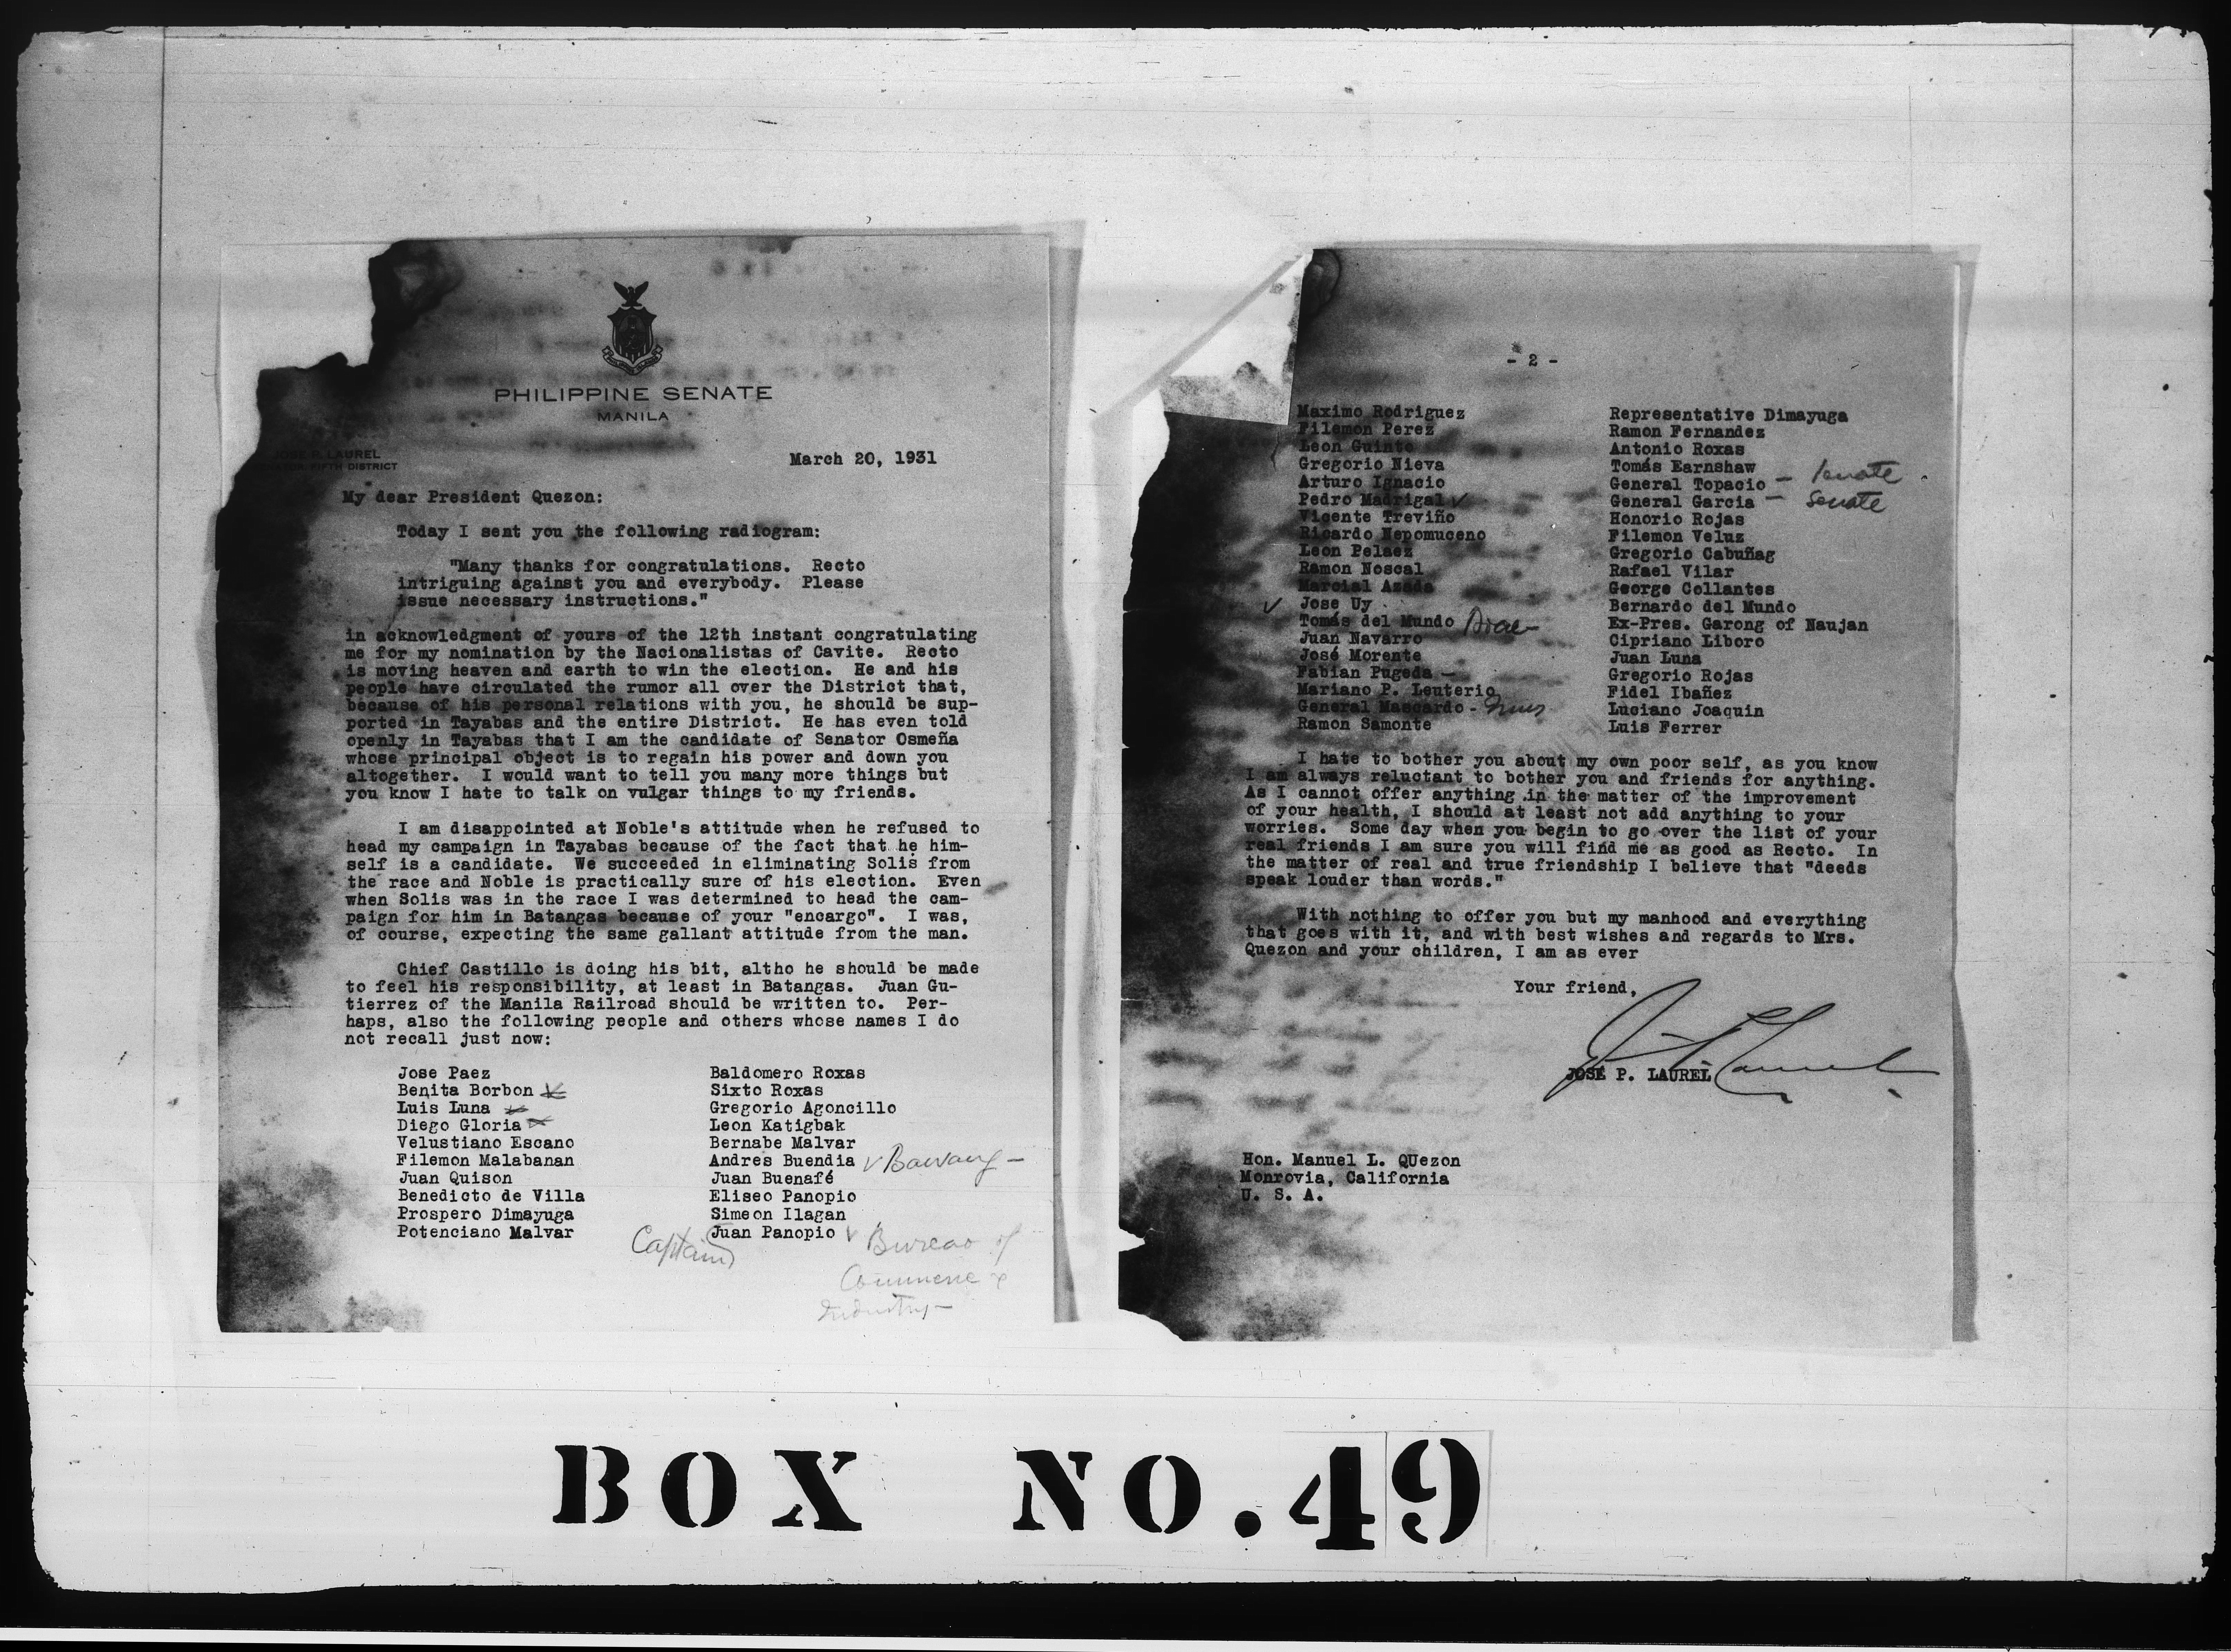 PHILIPPINE SENATE
MANILA
JOSE P. LAUREL
FIFTH DISTRICT
March 20, 1931
My dear President Quezon:
Today I sent you the following radiogram:
"Many thanks for congratulations. Recto
intriguing against you and everybody. Please
issue necessary instructions."
in acknowledgment of yours of the 12th instant congratulating
me for my nomination by the Nacionalistas of Cavite. Recto
is moving heaven and earth to win the election. He and his
people have circulated the rumor all over the District that,
because of his personal relations with you, he should be sup-
ported in Tayabas and the entire District. He has even told
openly in Tayabas that I am the candidate of Senator Osmeña
whose principal object is to regain his power and down you
altogether. I would want to tell you many more things but
you know I hate to talk on vulgar things to my friends.
I am disappointed at Noble's attitude when he refused to
head my campaign in Tayabas because of the fact that he him-
self is a candidate. We succeeded in eliminating Solis from
the race and Noble is practically sure of his election. Even
when Solis was in the race I was determined to head the cam-
paign for him in Batangas because of your "encargo". I was,
of course, expecting the same gallant attitude from the man.
Chief Castillo is doing his bit, altho he should be made
to feel his responsibility, at least in Batangas. Juan Gu-
tierrez of the Manila Railroad should be written to. Per-
haps, also the following people and others whose names I do
not recall just now:
Jose Paez Baldomero Roxas
Benita Borbon Sixto Roxas
Luis Luna Gregorio Agoncillo
Diego Gloria Leon Katigbak
Velustiano Escano Bernabe Malvar
Filemon Malabanan Andres Buendia
Juan Quison Juan Buenafé
Benedicto de Villa Eliseo Panopio
Prospero Dimayuga Simeon Ilagan
Potenciano Malvar Captain Juan Panopio Bureao of
Commerce &
Industry
- 2 -
Maximo Rodriguez Representative Dimayuga
Filemon Perez Ramon Fernandez
Leon Guinto Antonio Roxas
Gregorio Nieva Tomás Earnshaw
Arturo Ignacio General Topacio - Senate
Pedro Madrigal General Garcia - Senate
Vicente Treviño Honorio Rojas
Ricardo Nepomuceno Filemon Veluz
Leon Pelaez Gregorio Cabuñag
Ramon Noscal Rafael Vilar
Marcial Azada George Collantes
Jose Uy Bernardo del Mundo
Tomás del Mundo Ex-Pres. Garong of Naujan
Juan Navarro Cipriano Liboro
José Morente Juan Luna
Fabian Pugeda Gregorio Rojas
Mariano P. Leuterio Fidel Ibañez
General Mascardo - Luciano Joaquin
Ramon Samonte Luis Ferrer
I hate to bother you about my own poor self, as you know
I am always reluctant to bother you and friends for anything.
As I cannot offer anything in the matter of the improvement
of your health, I should at least not add anything to your
worries. Some day when you begin to go over the list of your
real friends I am sure you will find me as good as Recto. In
the matter of real and true friendship I believe that "deeds
speak louder than words."
With nothing to offer you but my manhood and everything
that goes with it, and with best wishes and regards to Mrs.
Quezon and your children, I am as ever
Your friend,
JOSE P. LAUREL
Hon. Manuel L. QUezon
Monrovia, California
U. S. A.
BOX NO.49